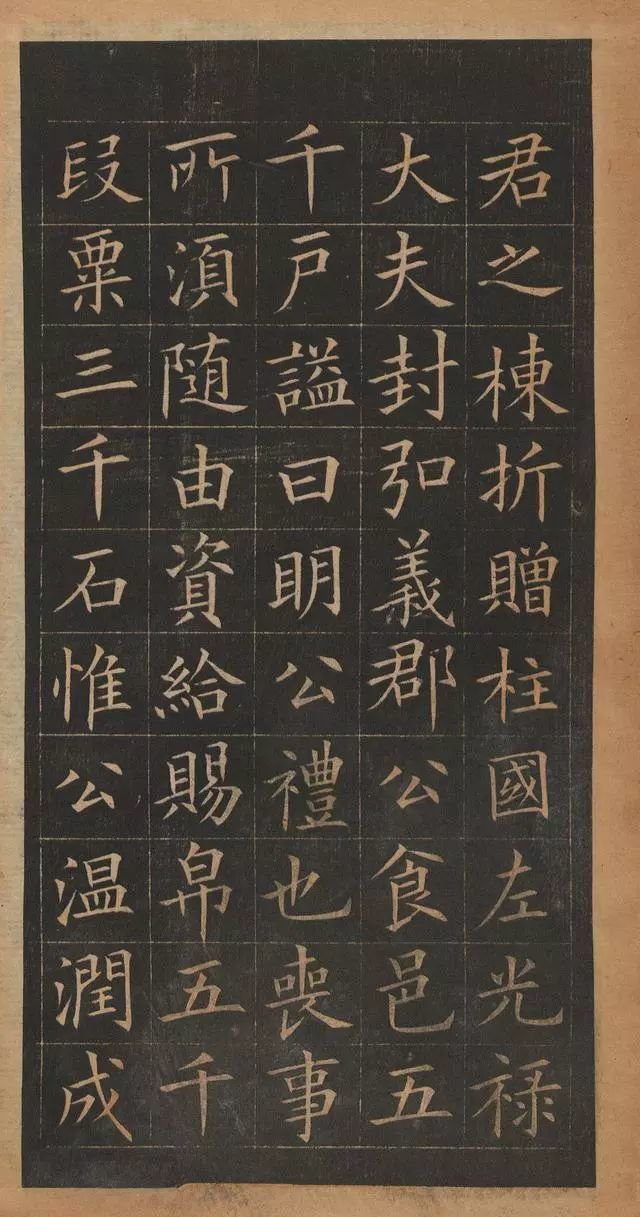 君之棟折贈柱國左光禄
大夫封弘義郡公食邑五
千户謚曰明公禮也喪事
所湏随由資給賜帛五千
段粟三千石惟公温潤成